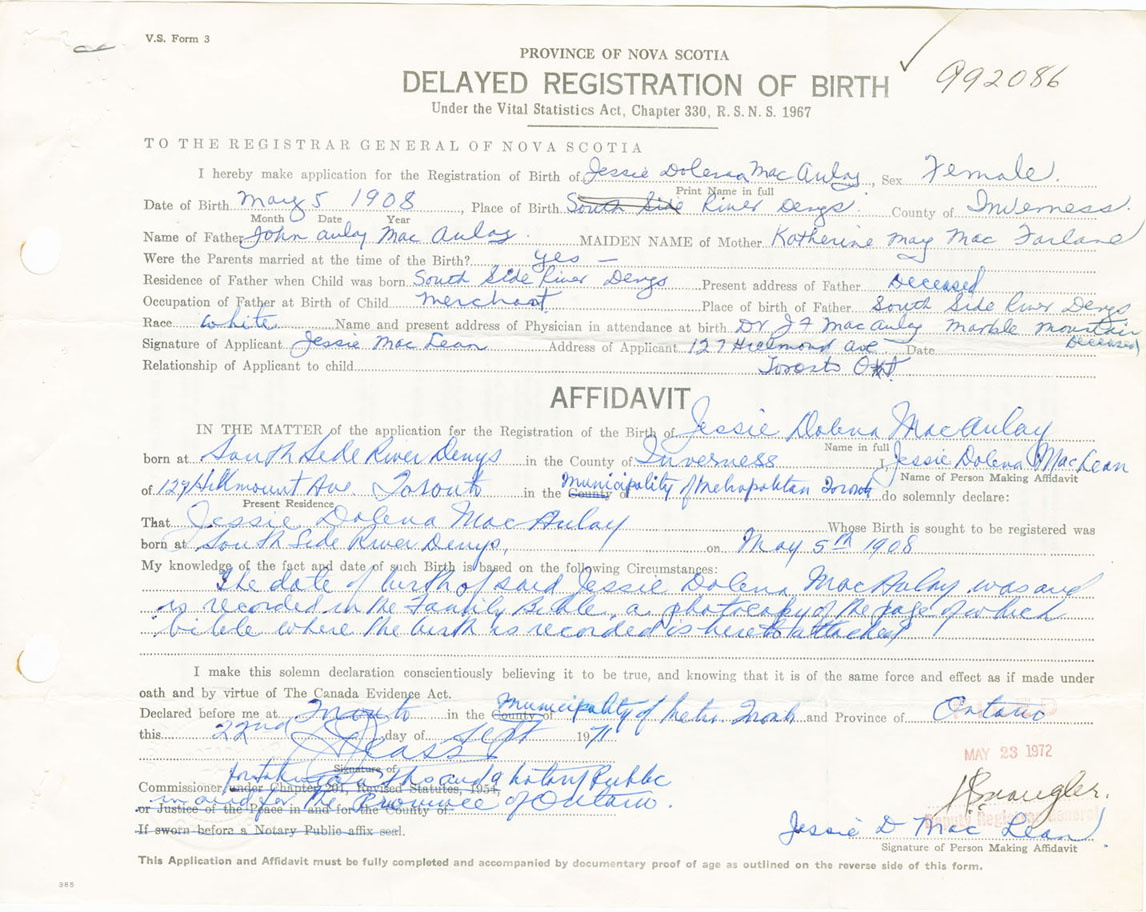 V.S. Form 3
PROVINCE OF NOVA SCOTIA
DELAYED REGISTRATION OF BIRTH
992086
Under the Vital Statistics Act, Chapter 330, R.S.N.S. 1967
TO THE REGISTRAR GENERAL OF NOVA SCOTIA
I hereby make application for the Registration of Birth of Jessie Dolena MacAulay, Sex Female.
Print Name in full
Date of Birth May 5 1908, Place of Birth South Side River Denys County of Inverness.
Month Date Year
Name of Father John Aulay MacAulay. MAIDEN NAME of Mother Katherine May MacFarlane
Were the Parents married at the time of the Birth? yes —
Residence of Father when Child was born South Side River Denys Present address of Father Deceased
Occupation of Father at Birth of Child merchant. Place of birth of Father South Side River Denys
Race white Name and present address of Physician in attendance at birth Dr J F MacAulay Marble Mountain
Deceased
Signature of Applicant Jessie MacLean Address of Applicant 127 Ave Date
Relationship of Applicant to child Toronto Ont.
AFFIDAVIT
IN THE MATTER of the application for the Registration of the Birth of Jessie Dolena MacAulay
Name in full
born at South Side River Denys in the County of Inverness I, Jessie Dolena MacLean
Name of Person Making Affidavit
of 127 Hillmount Ave. Toronto in the County of Municipality of Metropolitan Toronto do solemnly declare:
Present Residence
That Jessie Dolena MacAulay Whose Birth is sought to be registered was
born at South Side River Denys, on May 5th 1908
My knowledge of the fact and date of such Birth is based on the following Circumstances:
The date of birth of said Jessie Dolena MacAulay was and
is recorded in the Family Bible, a photocopy of the page of which
bible where the birth is recorded is hereto attached
I make this solemn declaration conscientiously believing it to be true, and knowing that it is of the same force and effect as if made under
oath and by virtue of The Canada Evidence Act.
Declared before me at Toronto in the County of Municipality of Metro. and Province of Ontario
this 22nd day of Sept 1971
MAY 23 1972
Signature of
for taking and Notary Public
Commissioner under Chapter 201, Revised Statutes, 1954,
in and for the Province of Ontario.
or Justice of the Peace in and for the County of
Deputy Registrar General
If sworn before a Notary Public affix seal.
Jessie D MacLean
Signature of Person Making Affidavit
This Application and Affidavit must be fully completed and accompanied by documentary proof of age as outlined on the reverse side of this form.
385